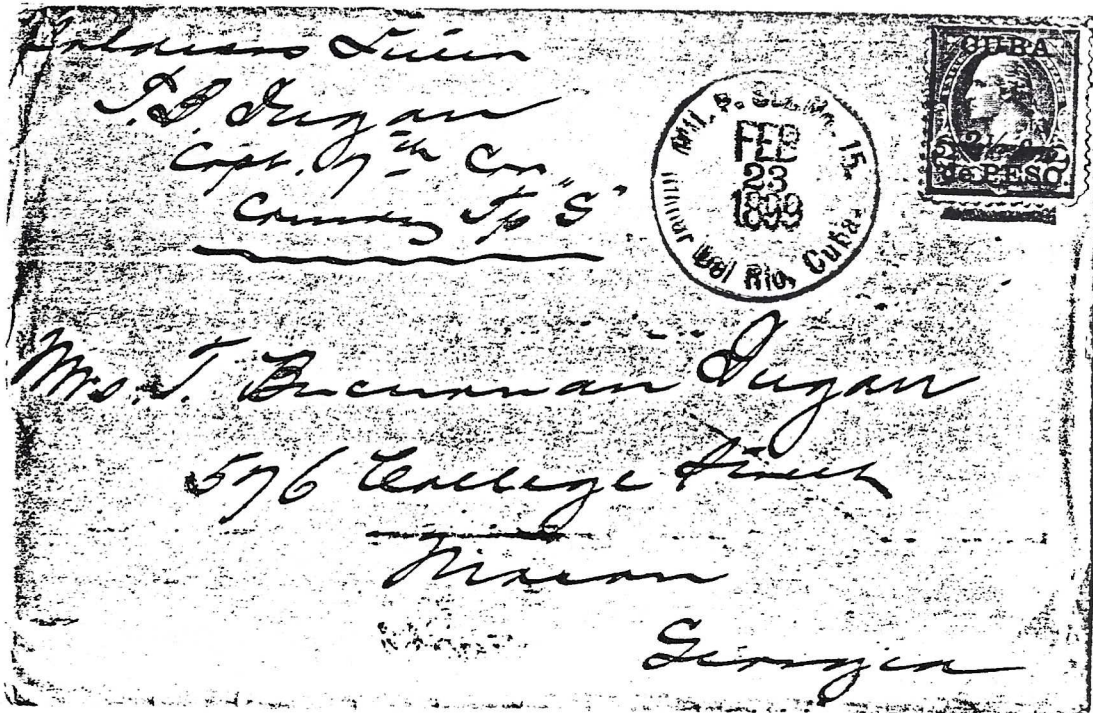 Soldiers Letter
T. B. Dugan
Capt. 7th Cav
Commdg Tp "G"
Mil. P. Sta. No. 15.
FEB
23
1899
Pinar Del Rio, Cuba.
CUBA
2 2
de PESO
Mrs. T. Buchanan Dugan
576 College Street
Macon
Georgia